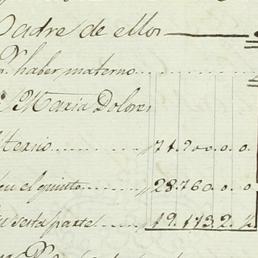 Padre de ellos
haber materno
Maria Dolores
tercio 71.200.0.0
en el quinto 28.760.0.0
sesta parte 19.173.2.